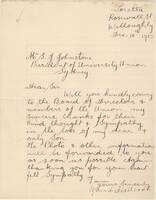 "Loretta"
Rosewall St
Willoughby
Dec. 10th 1917
Mr S. J. Johnstone
President of University Union
Sydney
Dear Sir
Will you kindly convey
to the Board of Directors &
members of the Union my
sincere thanks for their
kind thought & Sympathy
in the loss of my dear &
only son.
The Photo & other information
will be forwarded to you
as soon as possible again
thanking you for your heart
felt Sympathy
Yours Sincerely